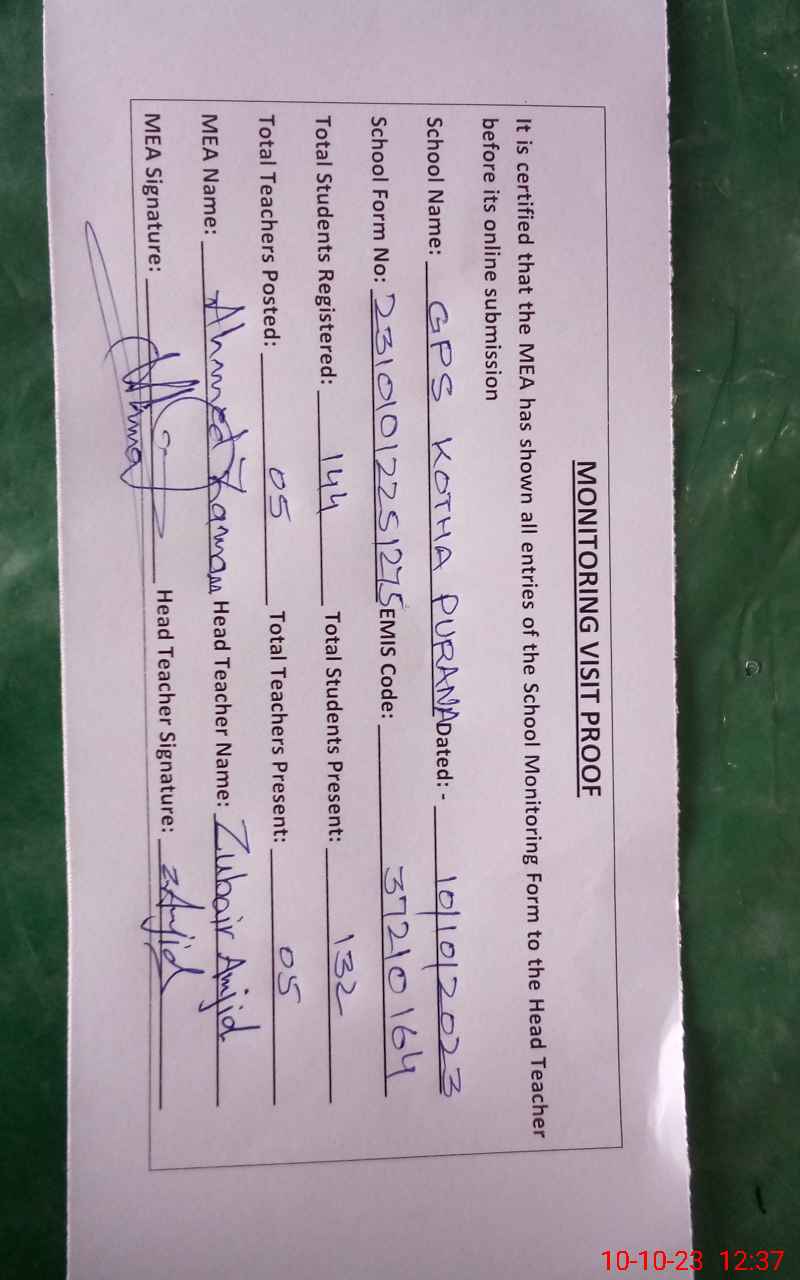 MONITORING VISIT PROOF
It is certified that the MEA has shown all entries of the School Monitoring Form to the Head Teacher
before its online submission
School Name: GPS KOTHA PURANA Dated:- 10/10/2023
School Form No: 23101012251275 EMIS Code: 37210164
Total Students Registered: 144 Total Students Present: 132
Total Teachers Posted: 05 Total Teachers Present: 05
MEA Name: Ahmed Zaman Head Teacher Name: Zubair Amjid
MEA Signature: Head Teacher Signature: ZAmjid
10-10-23 12:37